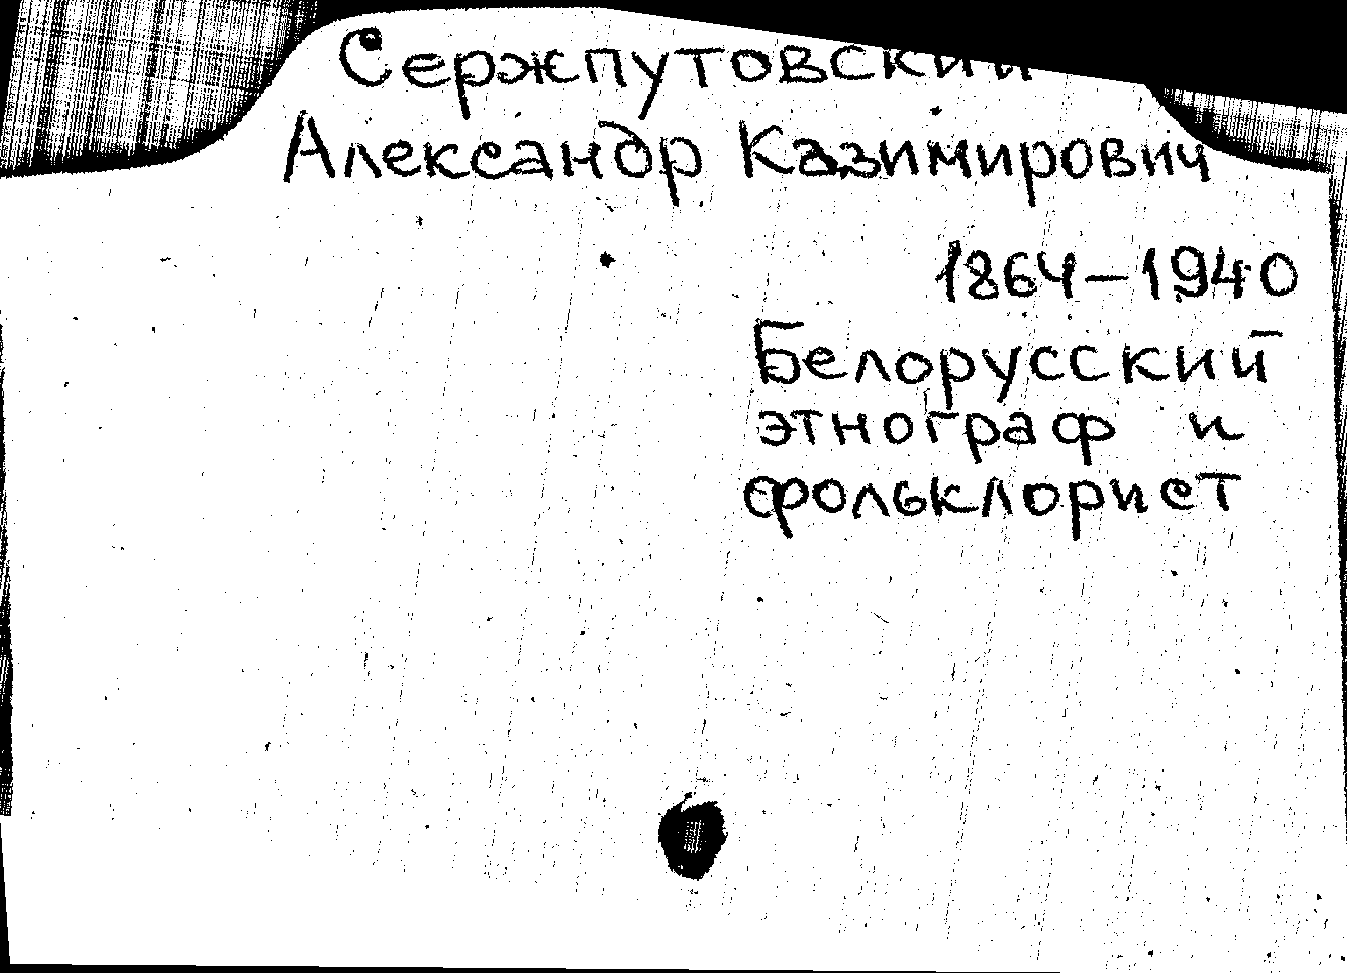 Сержпутовский
Александр Казимирович
1864–1940
Белорусский
этнограф и
фольклорист